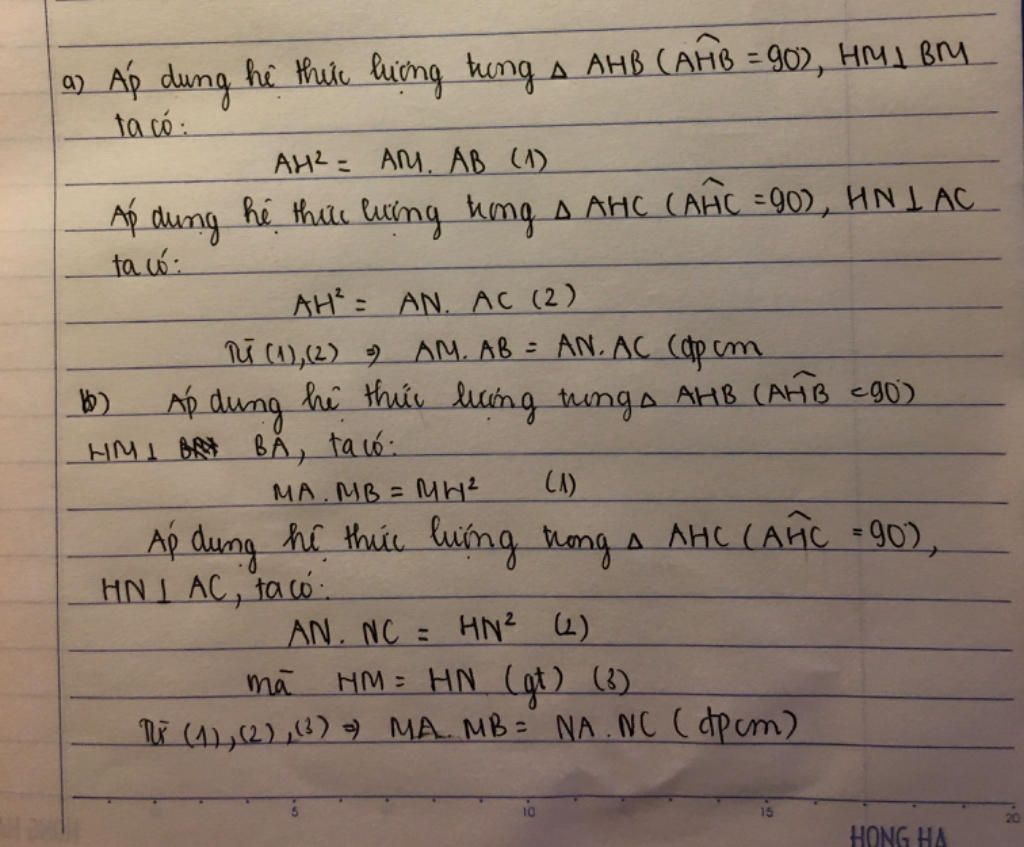 a) Áp dụng hệ thức lượng trong Δ AHB (AĤB = 90°), HM⊥ BM
ta có:
AH² = AM. AB (1)
Áp dụng hệ thức lượng trong Δ AHC (AĤC = 90°), HN ⊥ AC
ta có:
AH² = AN. AC (2)
Từ (1),(2) ⇒ AM. AB = AN. AC (đpcm
b) Áp dụng hệ thức lượng trong Δ AHB (AĤB = 90°)
HM⊥ BA, ta có:
MA. MB = MH² (1)
Áp dụng hệ thức lượng trong Δ AHC (AĤC = 90°),
HN ⊥ AC, ta có:
AN. NC = HN² (2)
mà HM = HN (gt) (3)
Từ (1),(2),(3) ⇒ MA. MB = NA. NC (đpcm)
5 10 15 20
HONG HA